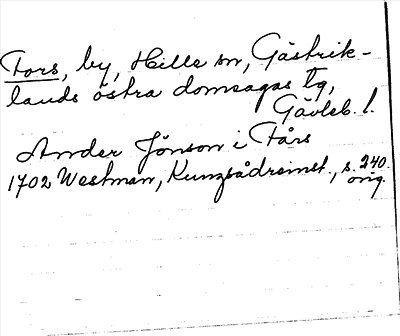 Fors, by, Hille sn, Gästrik-
lands östra domsagas tg,
Gävleb. l.
Ander Jönson i Fårs
1702 Westman, Kungsådreinst., s. 240.
orig.